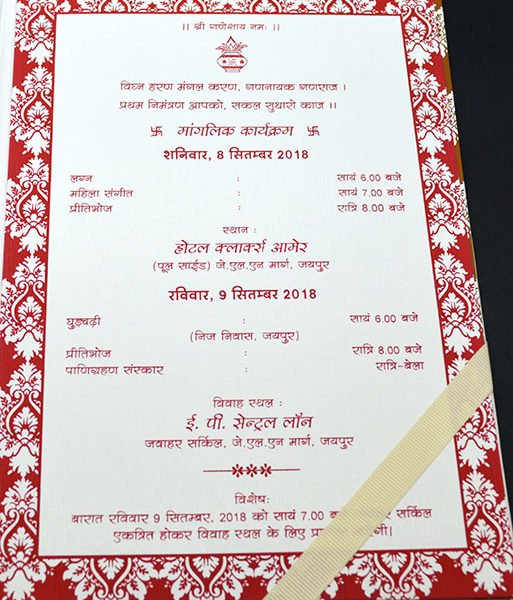 ।। श्री गणेशाय नमः ।।
विघ्न हरण मंगल करण, गणनायक गणराज ।
प्रथम निमंत्रण आपको, सकल सुधारो काज ।।
卐 मांगलिक कार्यक्रम 卐
शनिवार, 8 सितम्बर 2018
लग्न : सायं 6.00 बजे
महिला संगीत : सायं 7.00 बजे
प्रीतिभोज : रात्रि 8.00 बजे
स्थान :
होटल क्लार्क्स आमेर
(पूल साईड) जे.एल.एन मार्ग, जयपुर
रविवार, 9 सितम्बर 2018
घुड़चढ़ी : सायं 6.00 बजे
(निज निवास, जयपुर)
प्रीतिभोज : रात्रि 8.00 बजे
पाणिग्रहण संस्कार : रात्रि-बेला
विवाह स्थल :
ई. पी. सेन्ट्रल लॉन
जवाहर सर्किल, जे.एल.एन मार्ग, जयपुर
विशेषः
बारात रविवार 9 सितम्बर, 2018 को सायं 7.00 सर्किल
एकत्रित होकर विवाह स्थल के लिए